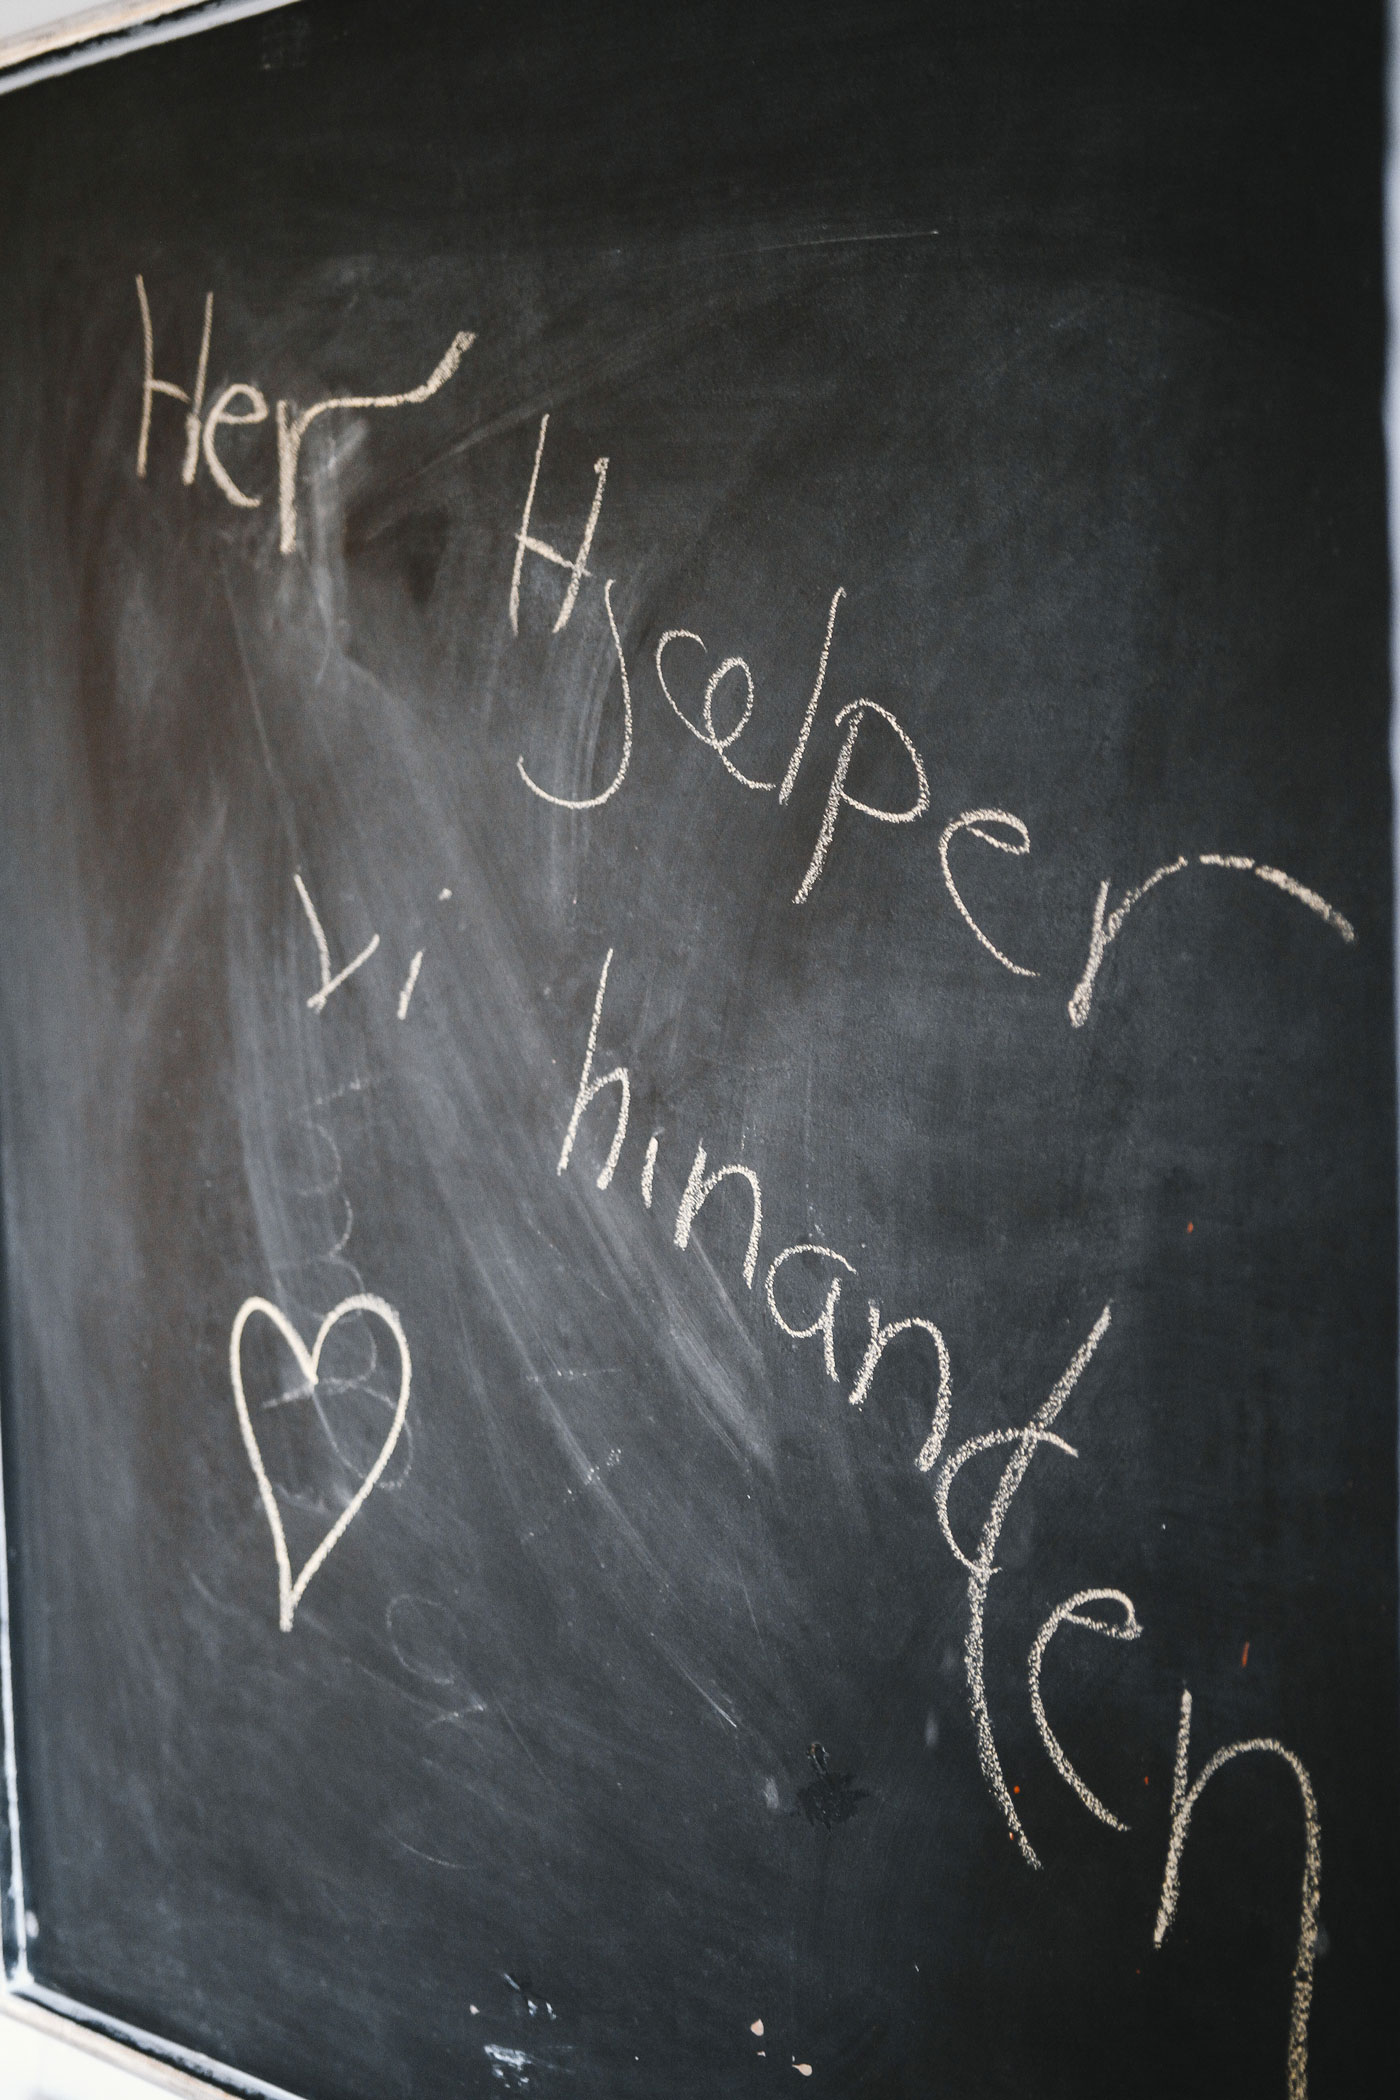 Her Hjælper
Vi hinanden